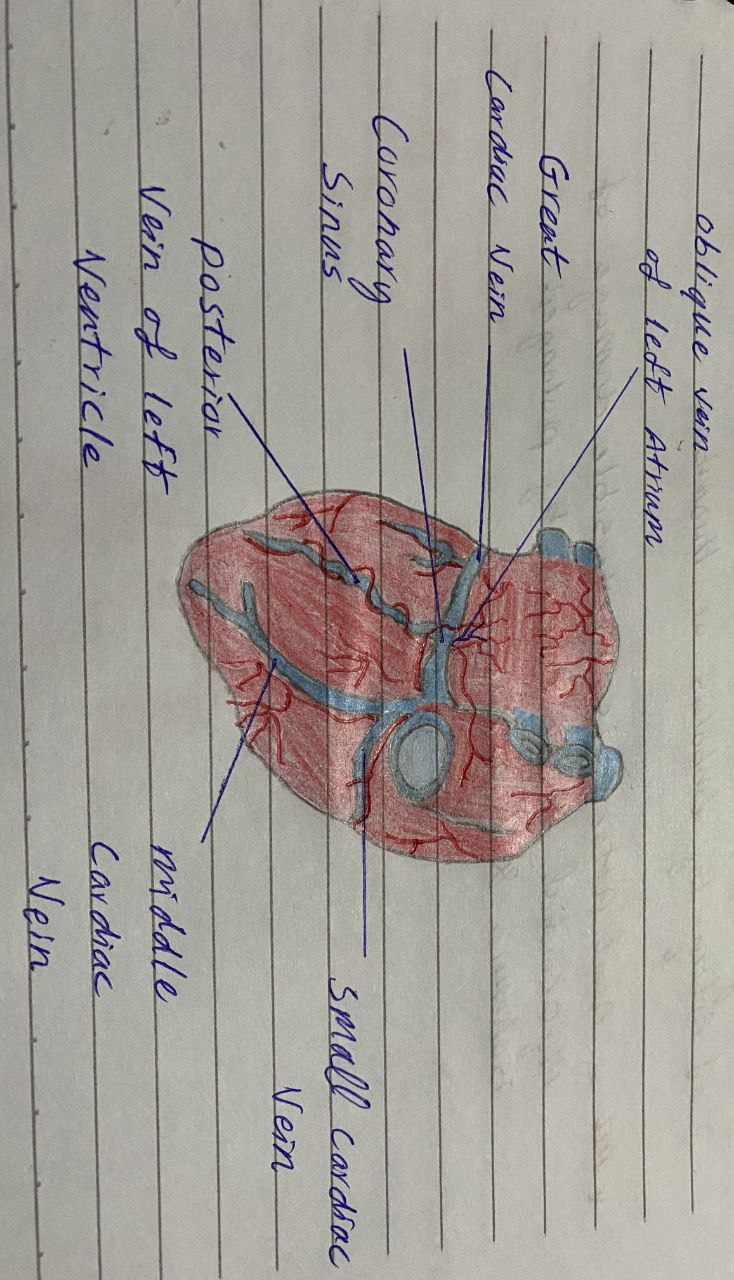 oblique vein
of left Atrium
Great
Cardiac Vein
Coronary
Sinus
posterior
Vein of left
Ventricle
Small Cardiac
Vein
middle
Cardiac
Vein